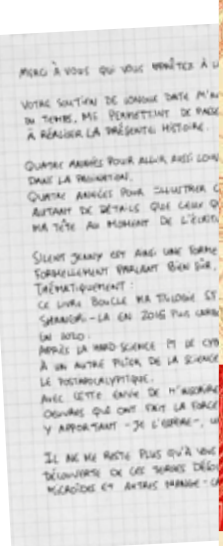 MERCI À VOUS QUI VOUS APPRÊTEZ À L
VOTRE SOUTIEN DE LONGUE DATE M'A
DU TEMPS, ME PERMETTENT DE PASSE
À RÉALISER LA PRÉSENTE HISTOIRE.
QUATRE ANNÉES POUR ALLER AUSSI LOIN
DANS LA PAGINATION.
QUATRE ANNÉES POUR ILLUSTRER C
AUTANT DE DÉTAILS QUE CEUX Q
MA TÊTE AU MOMENT DE L'ÉCRIT
SILENT JENNY EST AINSI UNE FORME
FORMELLEMENT PARLANT BIEN SÛR,
THÉMATIQUEMENT :
CE LIVRE BOUCLE MA TRILOGIE SF
SHANGRI-LA EN 2016 PUIS CARB
UN SOLO.
APRÈS LA HARD SCIENCE ET LE CYB
À UN AUTRE PILIER DE LA SCIENCE
LE POSTAPOCALYPTIQUE.
AVEC CETTE ENVIE DE M'INSCRIRE
OEUVRES QUI ONT FAIT LA FORCE
Y APPORTANT - JE L'ESPÈRE -, U
IL NE ME RESTE PLUS QU'À VOUS
DÉCOUVERTE DE CES TERRES DÉSO
MICROÏDES ET AUTRES MANGE-C